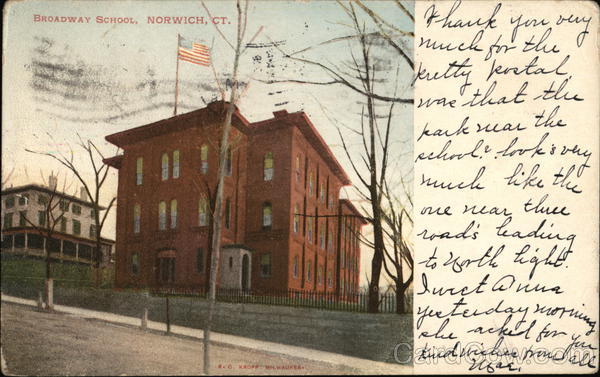 BROADWAY SCHOOL, NORWICH, CT.
Thank you very
much for the
pretty postal
was that the
park near the
school? look's very
much like the
one near three
road's leading
to North light.
I met Anna
yesterday morning
she asked for you
kind wishes from all
Mar.
E. C. KROPP, MILWAUKEE.
CardCow.com